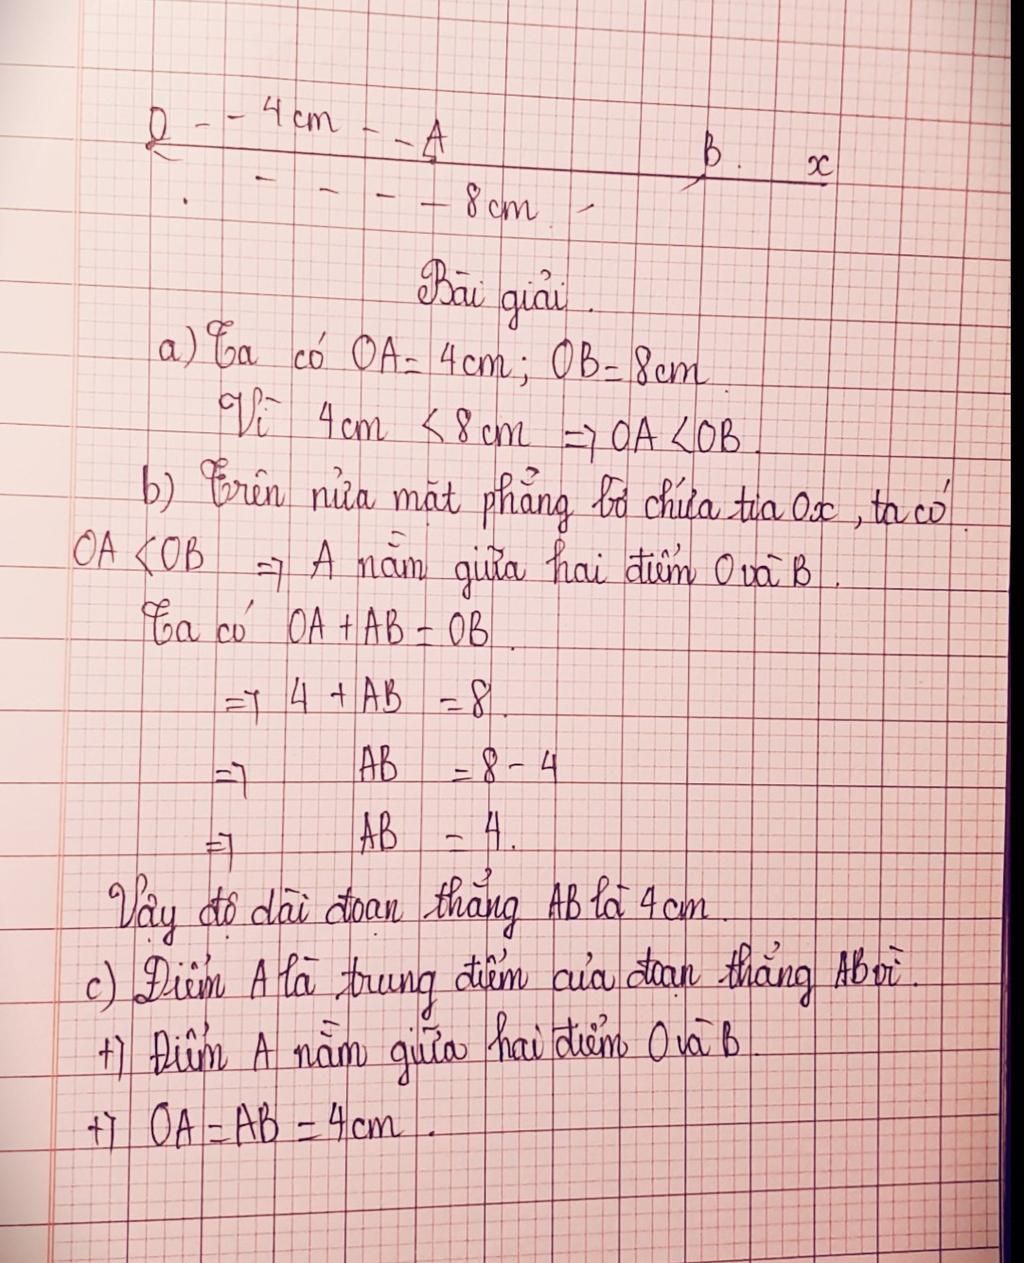 O - - 4cm - - A B. x
- - - - 8cm -
Bài giải.
a) Ta có OA = 4cm; OB = 8cm
Vì 4cm < 8cm => OA < OB
b) Trên nửa mặt phẳng bờ chứa tia Ox, ta có
OA < OB => A nằm giữa hai điểm O và B.
Ta có OA + AB = OB.
=> 4 + AB = 8.
=> AB = 8 - 4
=> AB = 4.
Vậy độ dài đoạn thẳng AB là 4cm.
c) Điểm A là trung điểm của đoạn thẳng AB vì.
+) Điểm A nằm giữa hai điểm O và B.
+) OA = AB = 4cm.